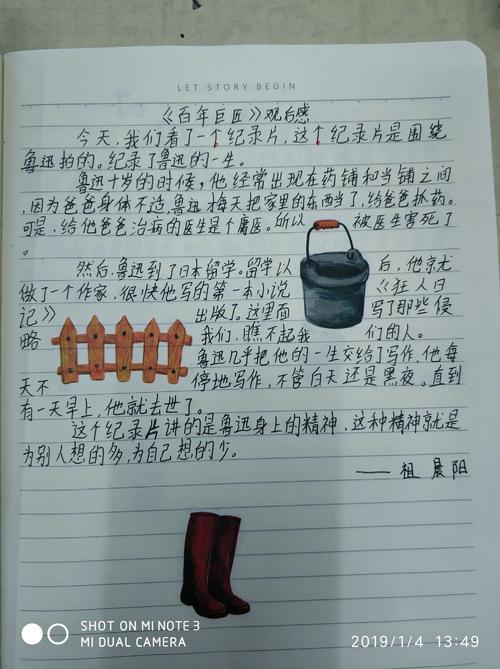 LET STORY BEGIN
《百年巨匠》观后感
今天,我们看了一个纪录片,这个纪录片是围绕
鲁迅拍的。纪录了鲁迅的一生。
鲁迅十岁的时候,他经常出现在药铺和当铺之间
,因为爸爸身体不适,鲁迅每天把家里的东西当了,给爸爸抓药。
可是,给他爸爸治病的医生是个庸医。所以 被医生害死了
。
然后,鲁迅到了日本留学。留学以 后,他就
做了一个作家,很快他写的第一本小说 《狂人日
记》 出版了。这里面 写了那些侵
略 我们,瞧不起我 们的人。
鲁迅几乎把他的一生交给了写作,他每
天不 停地写作,不管白天还是黑夜。直到
有一天早上,他就去世了。
这个纪录片讲的是鲁迅身上的精神,这种精神就是
为别人想的多,为自己想的少。
——祖晨阳
SHOT ON MI NOTE 3
MI DUAL CAMERA
2019/1/4 13:49